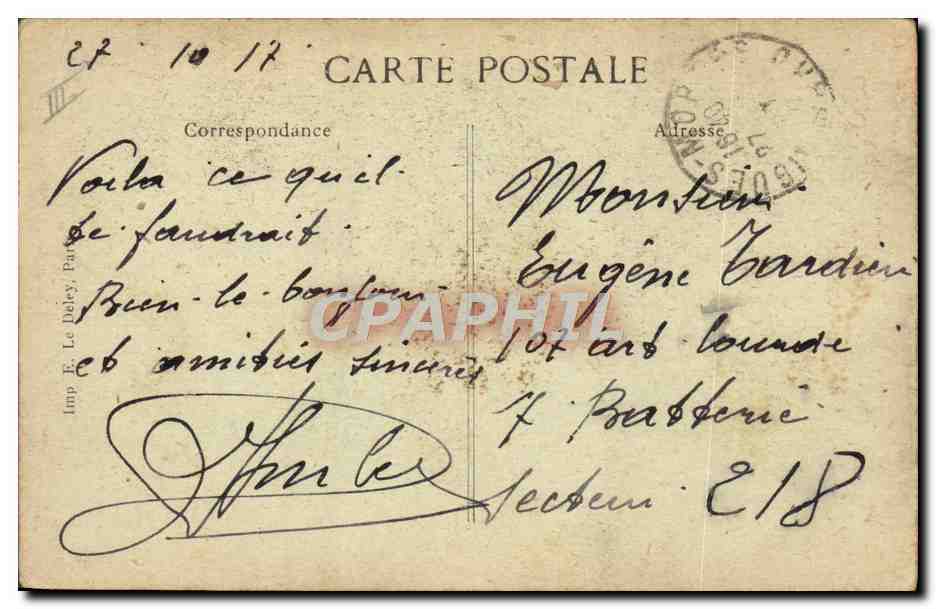 27 10 17
III
CARTE POSTALE
Correspondance
Adresse
Voila ce qu'il
te faudrait.
Bien le bonjour
et amitiés sincères
Monsieur
Eugène Tardieu
107 art lourde
7 Batterie
Secteur 218
Imp E. Le Deley, Paris
CPAPHIL